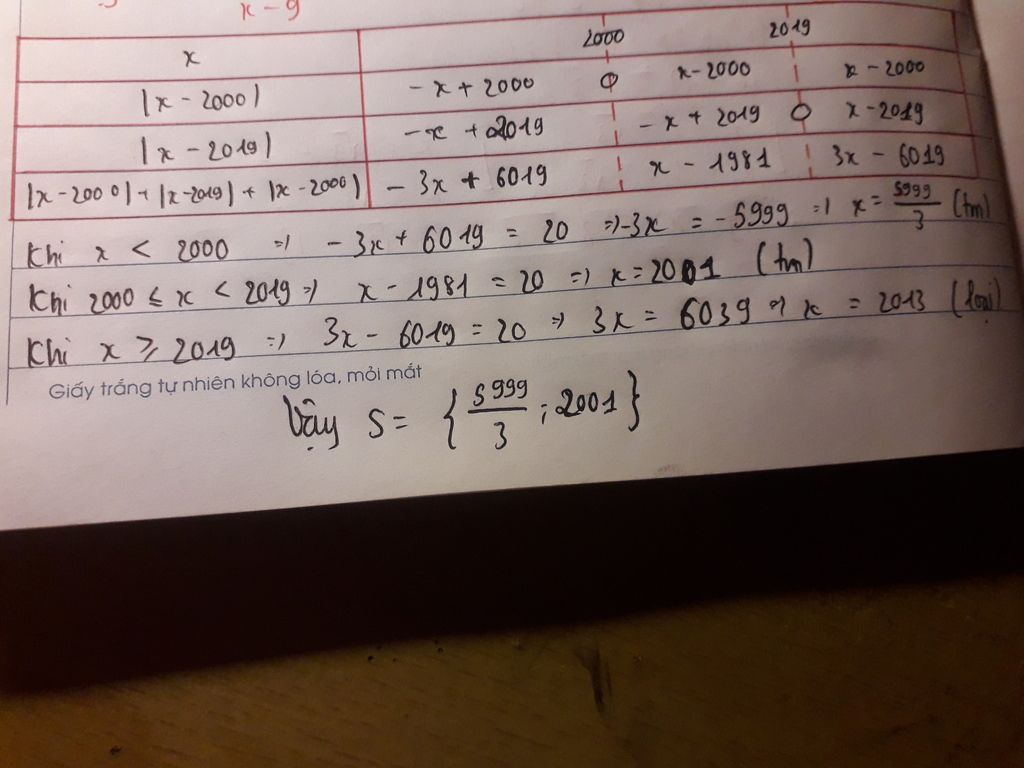 x - 9
x 2000 2019
|x - 2000| -x + 2000 0 x - 2000 x - 2000
|x - 2019| -x + 2019 -x + 2019 0 x - 2019
|x - 2000| + |x - 2019| + |x - 2000| -3x + 6019 x - 1981 3x - 6019
Khi x < 2000 => -3x + 6019 = 20 => -3x = -5999 => x = 5999/3 (tm)
Khi 2000 ≤ x < 2019 => x - 1981 = 20 => x = 2001 (tm)
Khi x ≥ 2019 => 3x - 6019 = 20 => 3x = 6039 => x = 2013 (loại)
Giấy trắng tự nhiên không lóa, mỏi mắt
Vậy S = {5999/3 ; 2001}